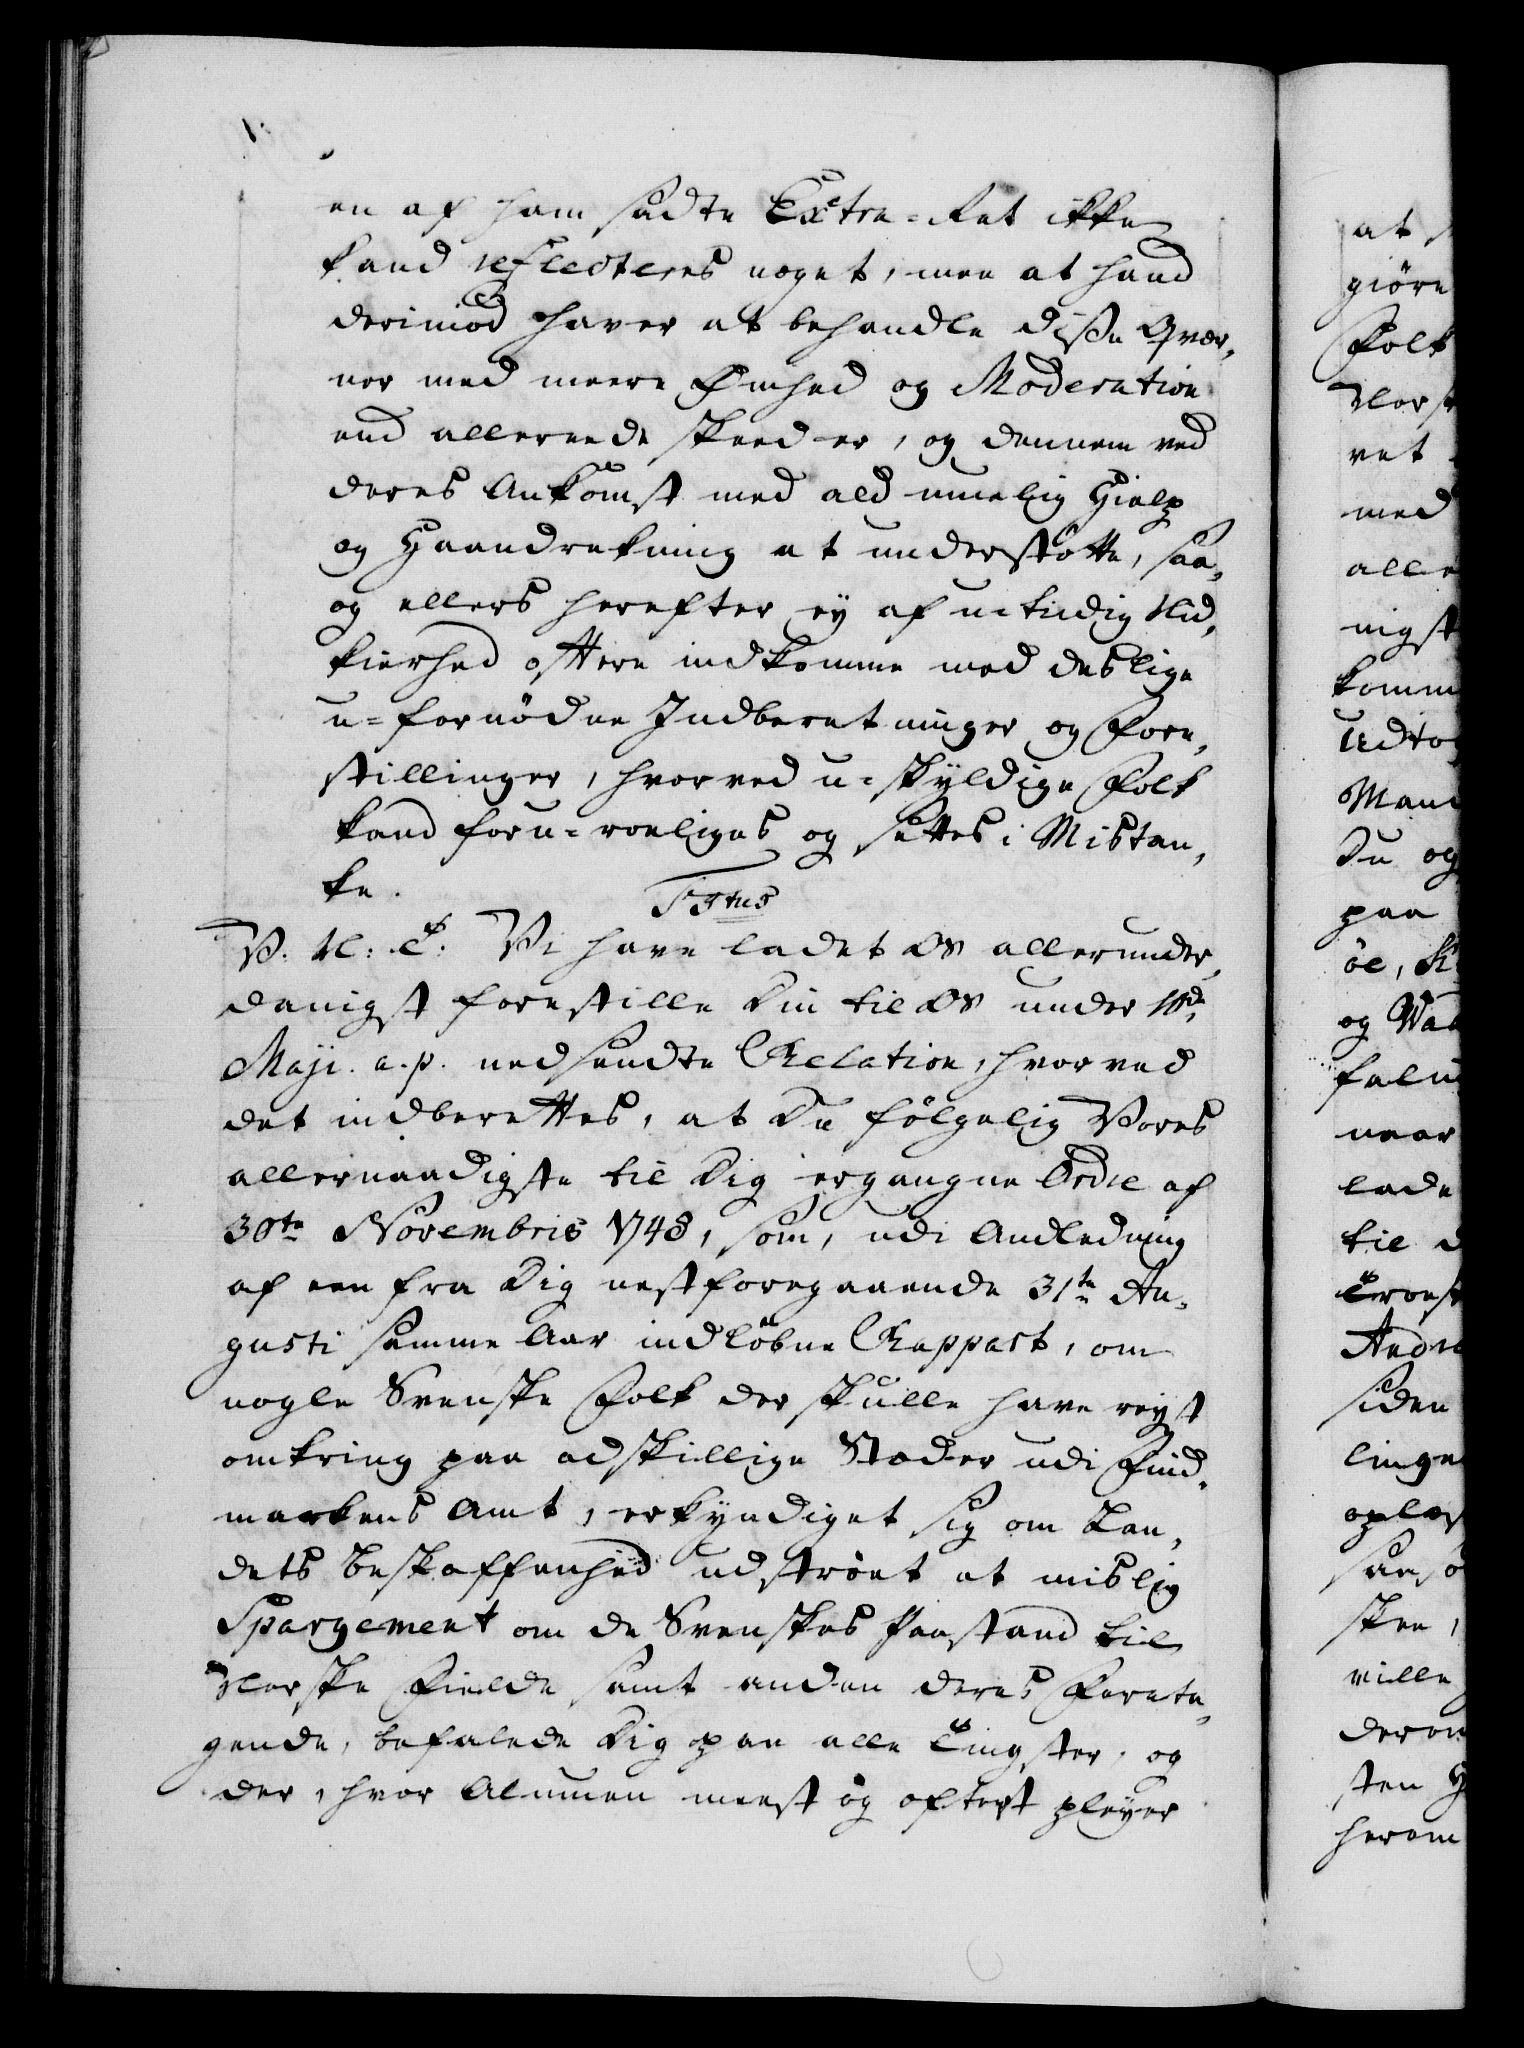 en af ham sadte Extra-Ret ikke
kand reflecteres noget, men at hand
derimod haver at behandle disse Qvæ-
ner med meere Ømhed og Moderation
end allereede skeed er, og dennem ved
deres Ankomst med ald muelig Hielp
og Haandrekning at understøtte, saa,
og ellers herefter ey af utidig Nid,
kierhed oftere indkomme med deslige
u-fornødne Indberetninger og Fore,
stillinger, hvorved u-skyldige Folk
kand foru-roeliges og settes i Mistan,
ke.
V. N: T: Vi have ladet Os allerunder,
danigst forestille Din til Os under
Maji. a. p. nedsendte Relation, hvorved
det indberettes, at Du følgelig Vores
allernaadigste til Dig ergangne Ordre af
30te Novembris 1748, som, udi Andledning
af een fra Dig nestforegaaende 31te Au-
gusti samme Aar indløbne Rapport, om
nogle Svenske Folk der skulle have reyst
omkring paa adskillige Stæder udi Find-
markens Amt, erkyndiget sig om Lan,
dets Beskaffenhed udstrøet et mislig
Spargement om de Svenskes Paastand til
Norske Fielde samt anden deres Foreta,
gende, befalede Dig paa alle Tingster, og
der, hvor Almuen meest og oftest pleyer
at
giøre
Folk
Norsk
vet
med
alle
nigst
komm
Udtog
Mand
Du og
paa
og
naar
lade
til d
Andre
siden
linge
skee,
ville
derom
herom